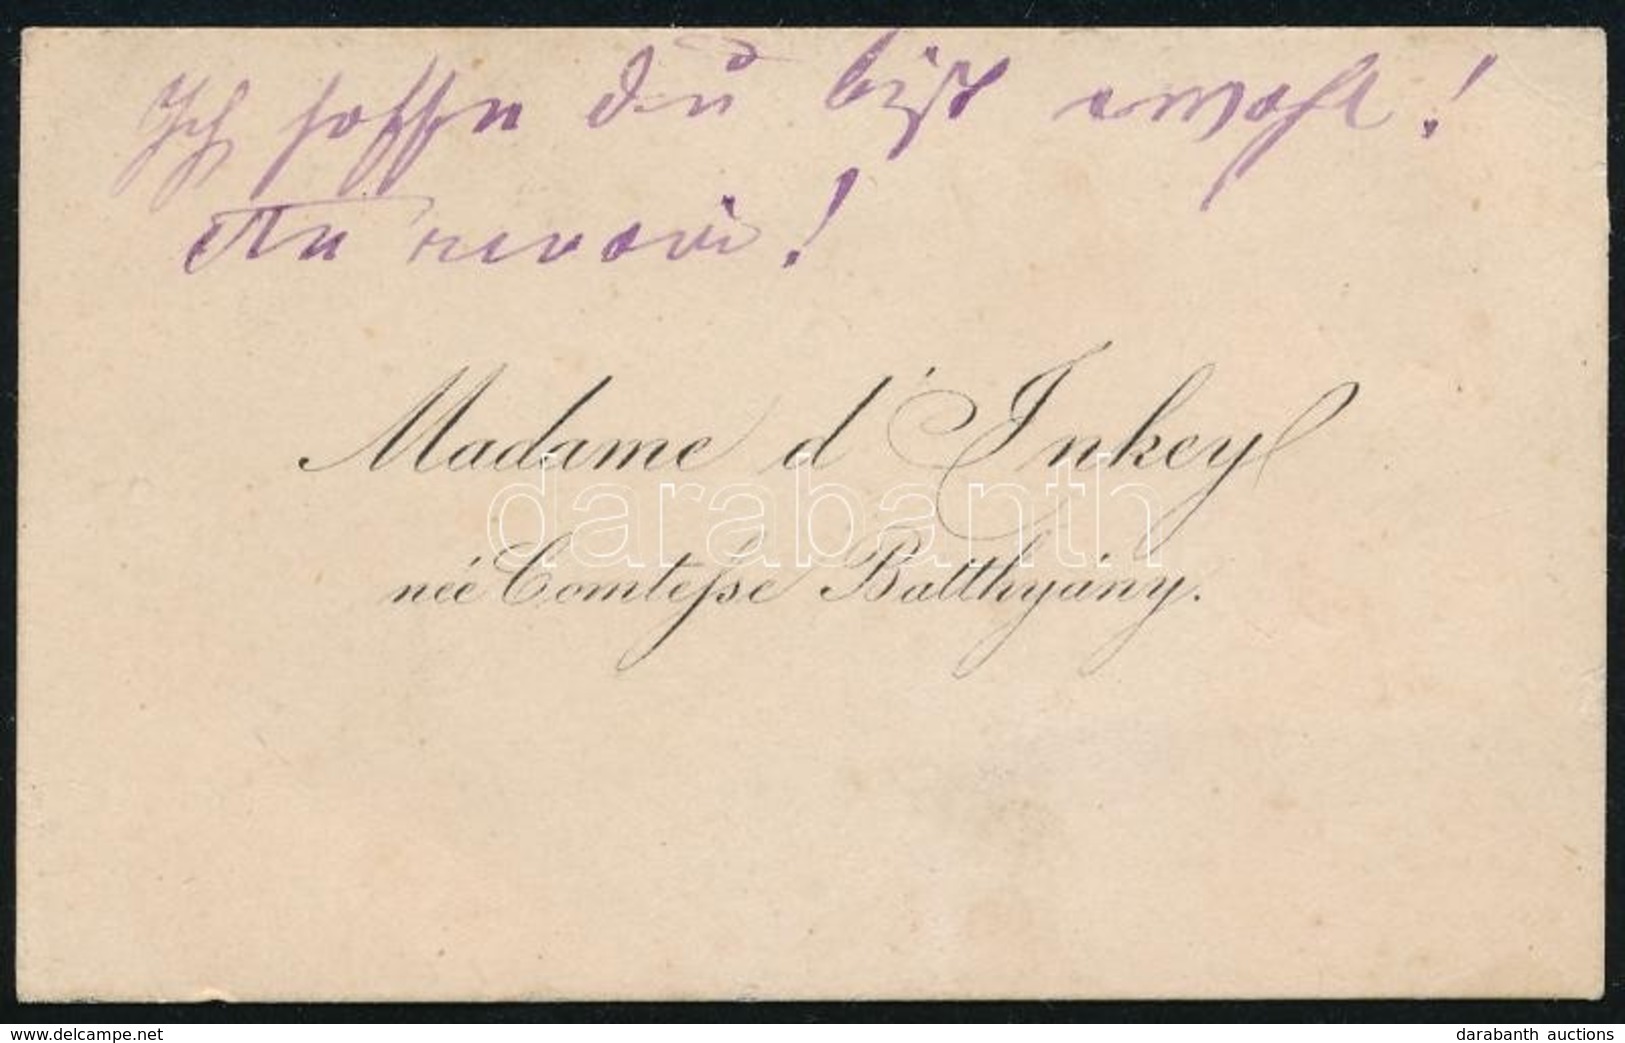 Ich hoffe du bist wohl!
Au revoir!
Madame d'Inkey
darabanth
née Comtesse Batthyány.
delcampe.net
darabanth auctions